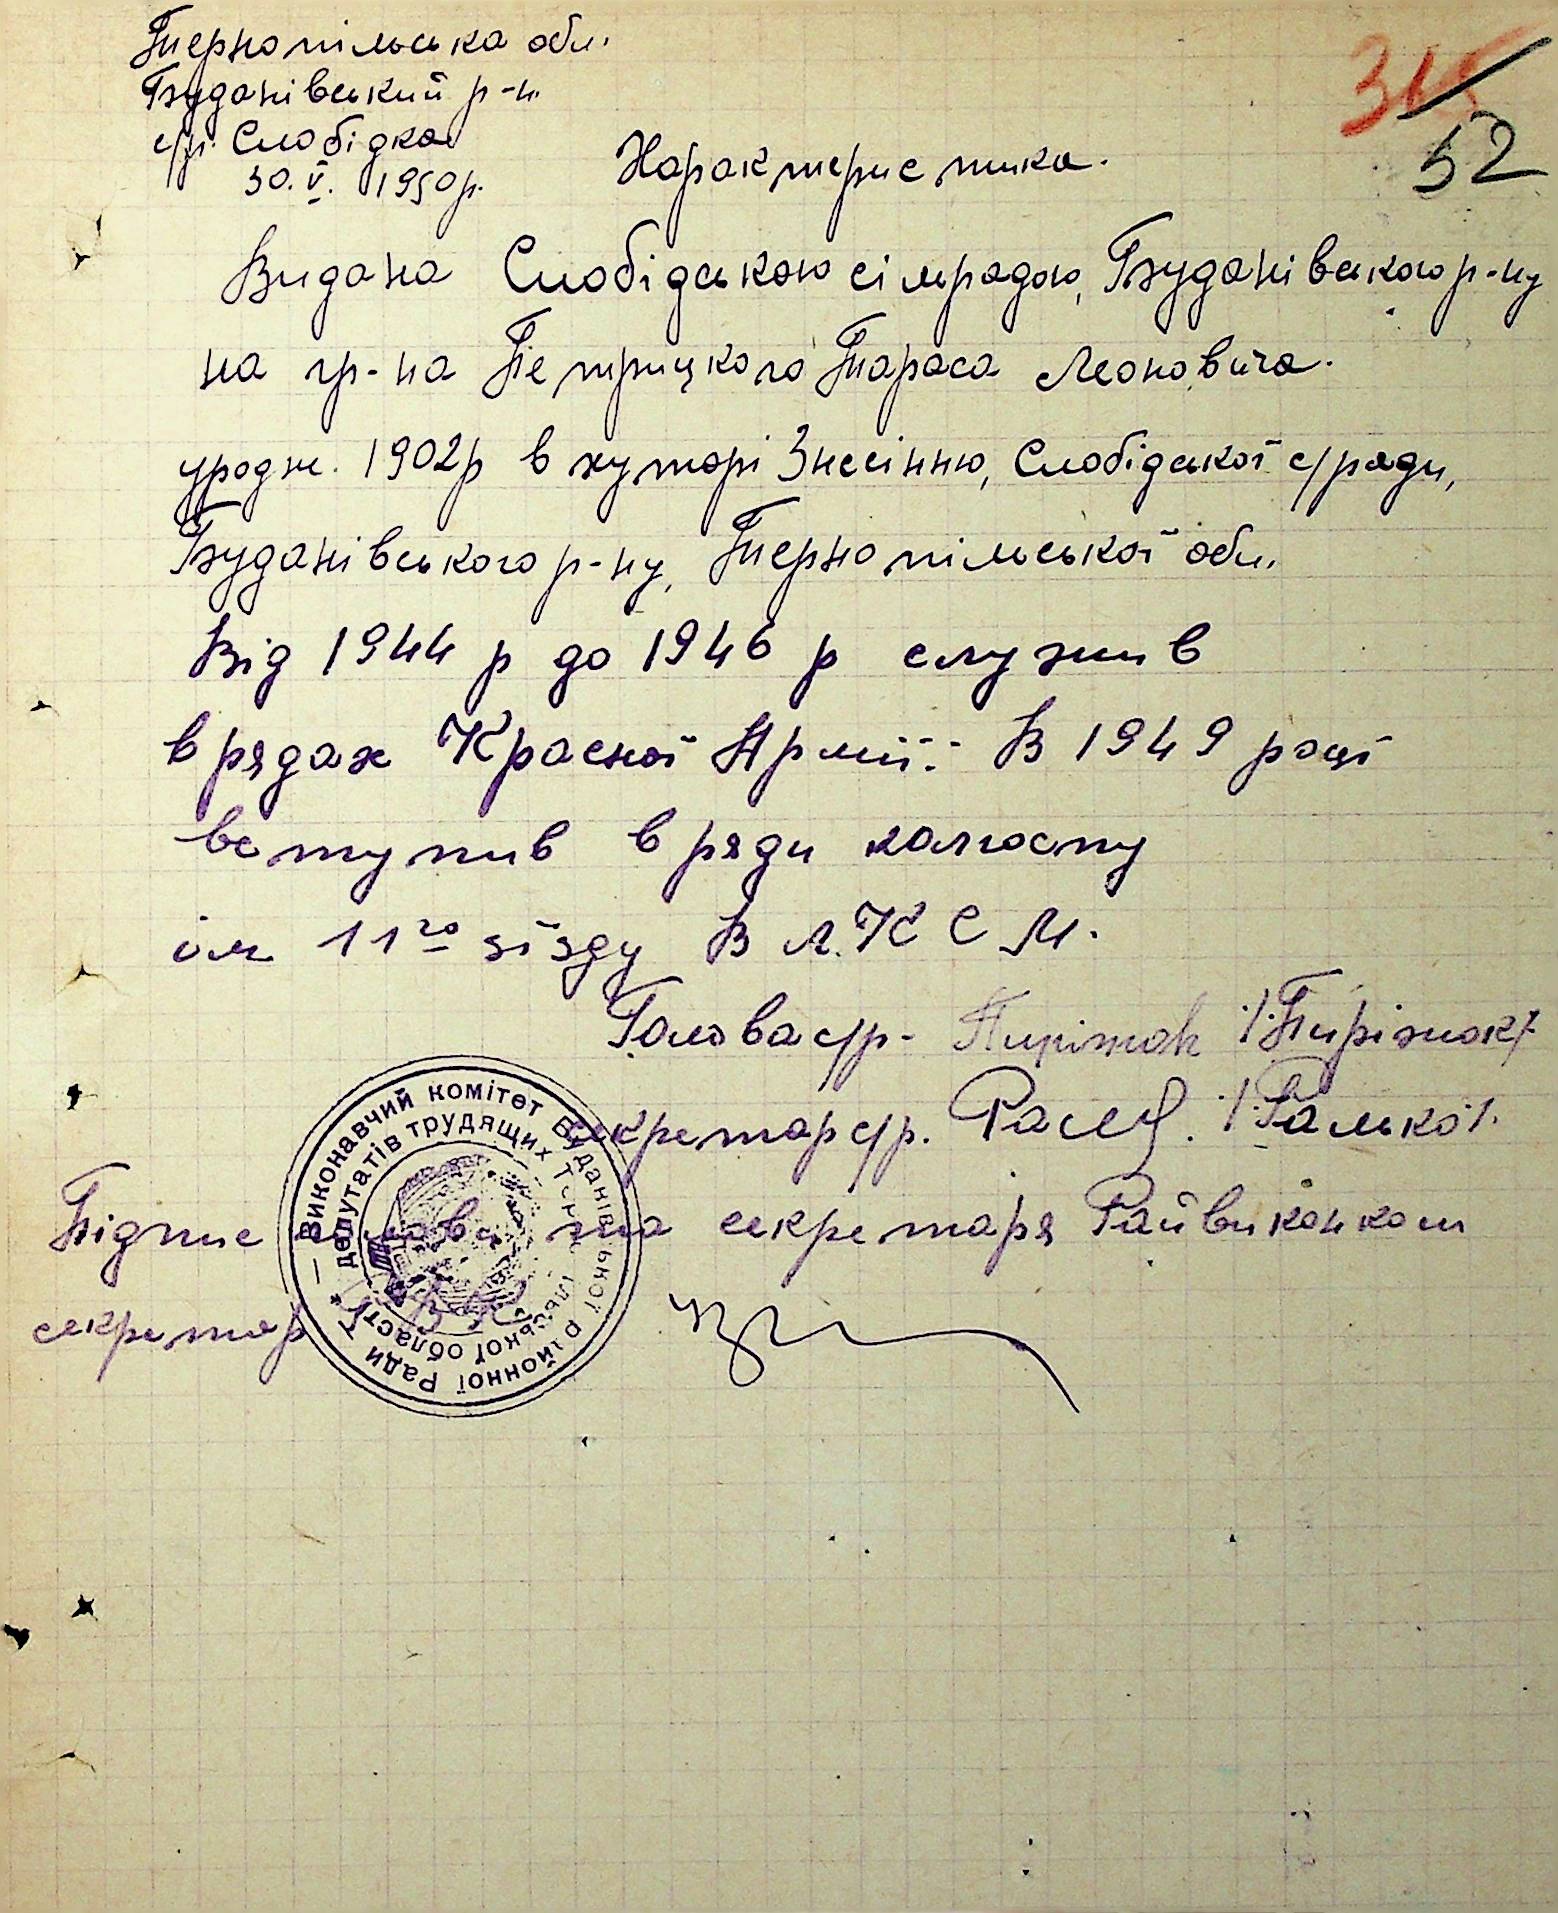 Тернопільська обл.
Буданівський р-н.
с/р. Слобідка
30.V. 1950р.
315
52
Характеристика.
Видана Слобідською сільрадою, Буданівського р-ну
на гр-на Петрицкого Тараса Леоновича.
уродж. 1902р в хуторі Знесінню, Слобідської с/ради,
Буданівського р-ну, Тернопільської обл.
Від 1944 р до 1946 р служив
в рядах Красної Армії. В 1949 році
вступив в ряди колгоспу
ім 11го зїзду В Л.К С М.
Голова с/р- Пиріжок /:Пиріжок/
секретар с/р. /:Галько/.
Підпис голови та секретаря Райвиконком
секретар РВК
Виконавчий комітет Буданівської районної Ради
депутатів трудящих Тернопільської області